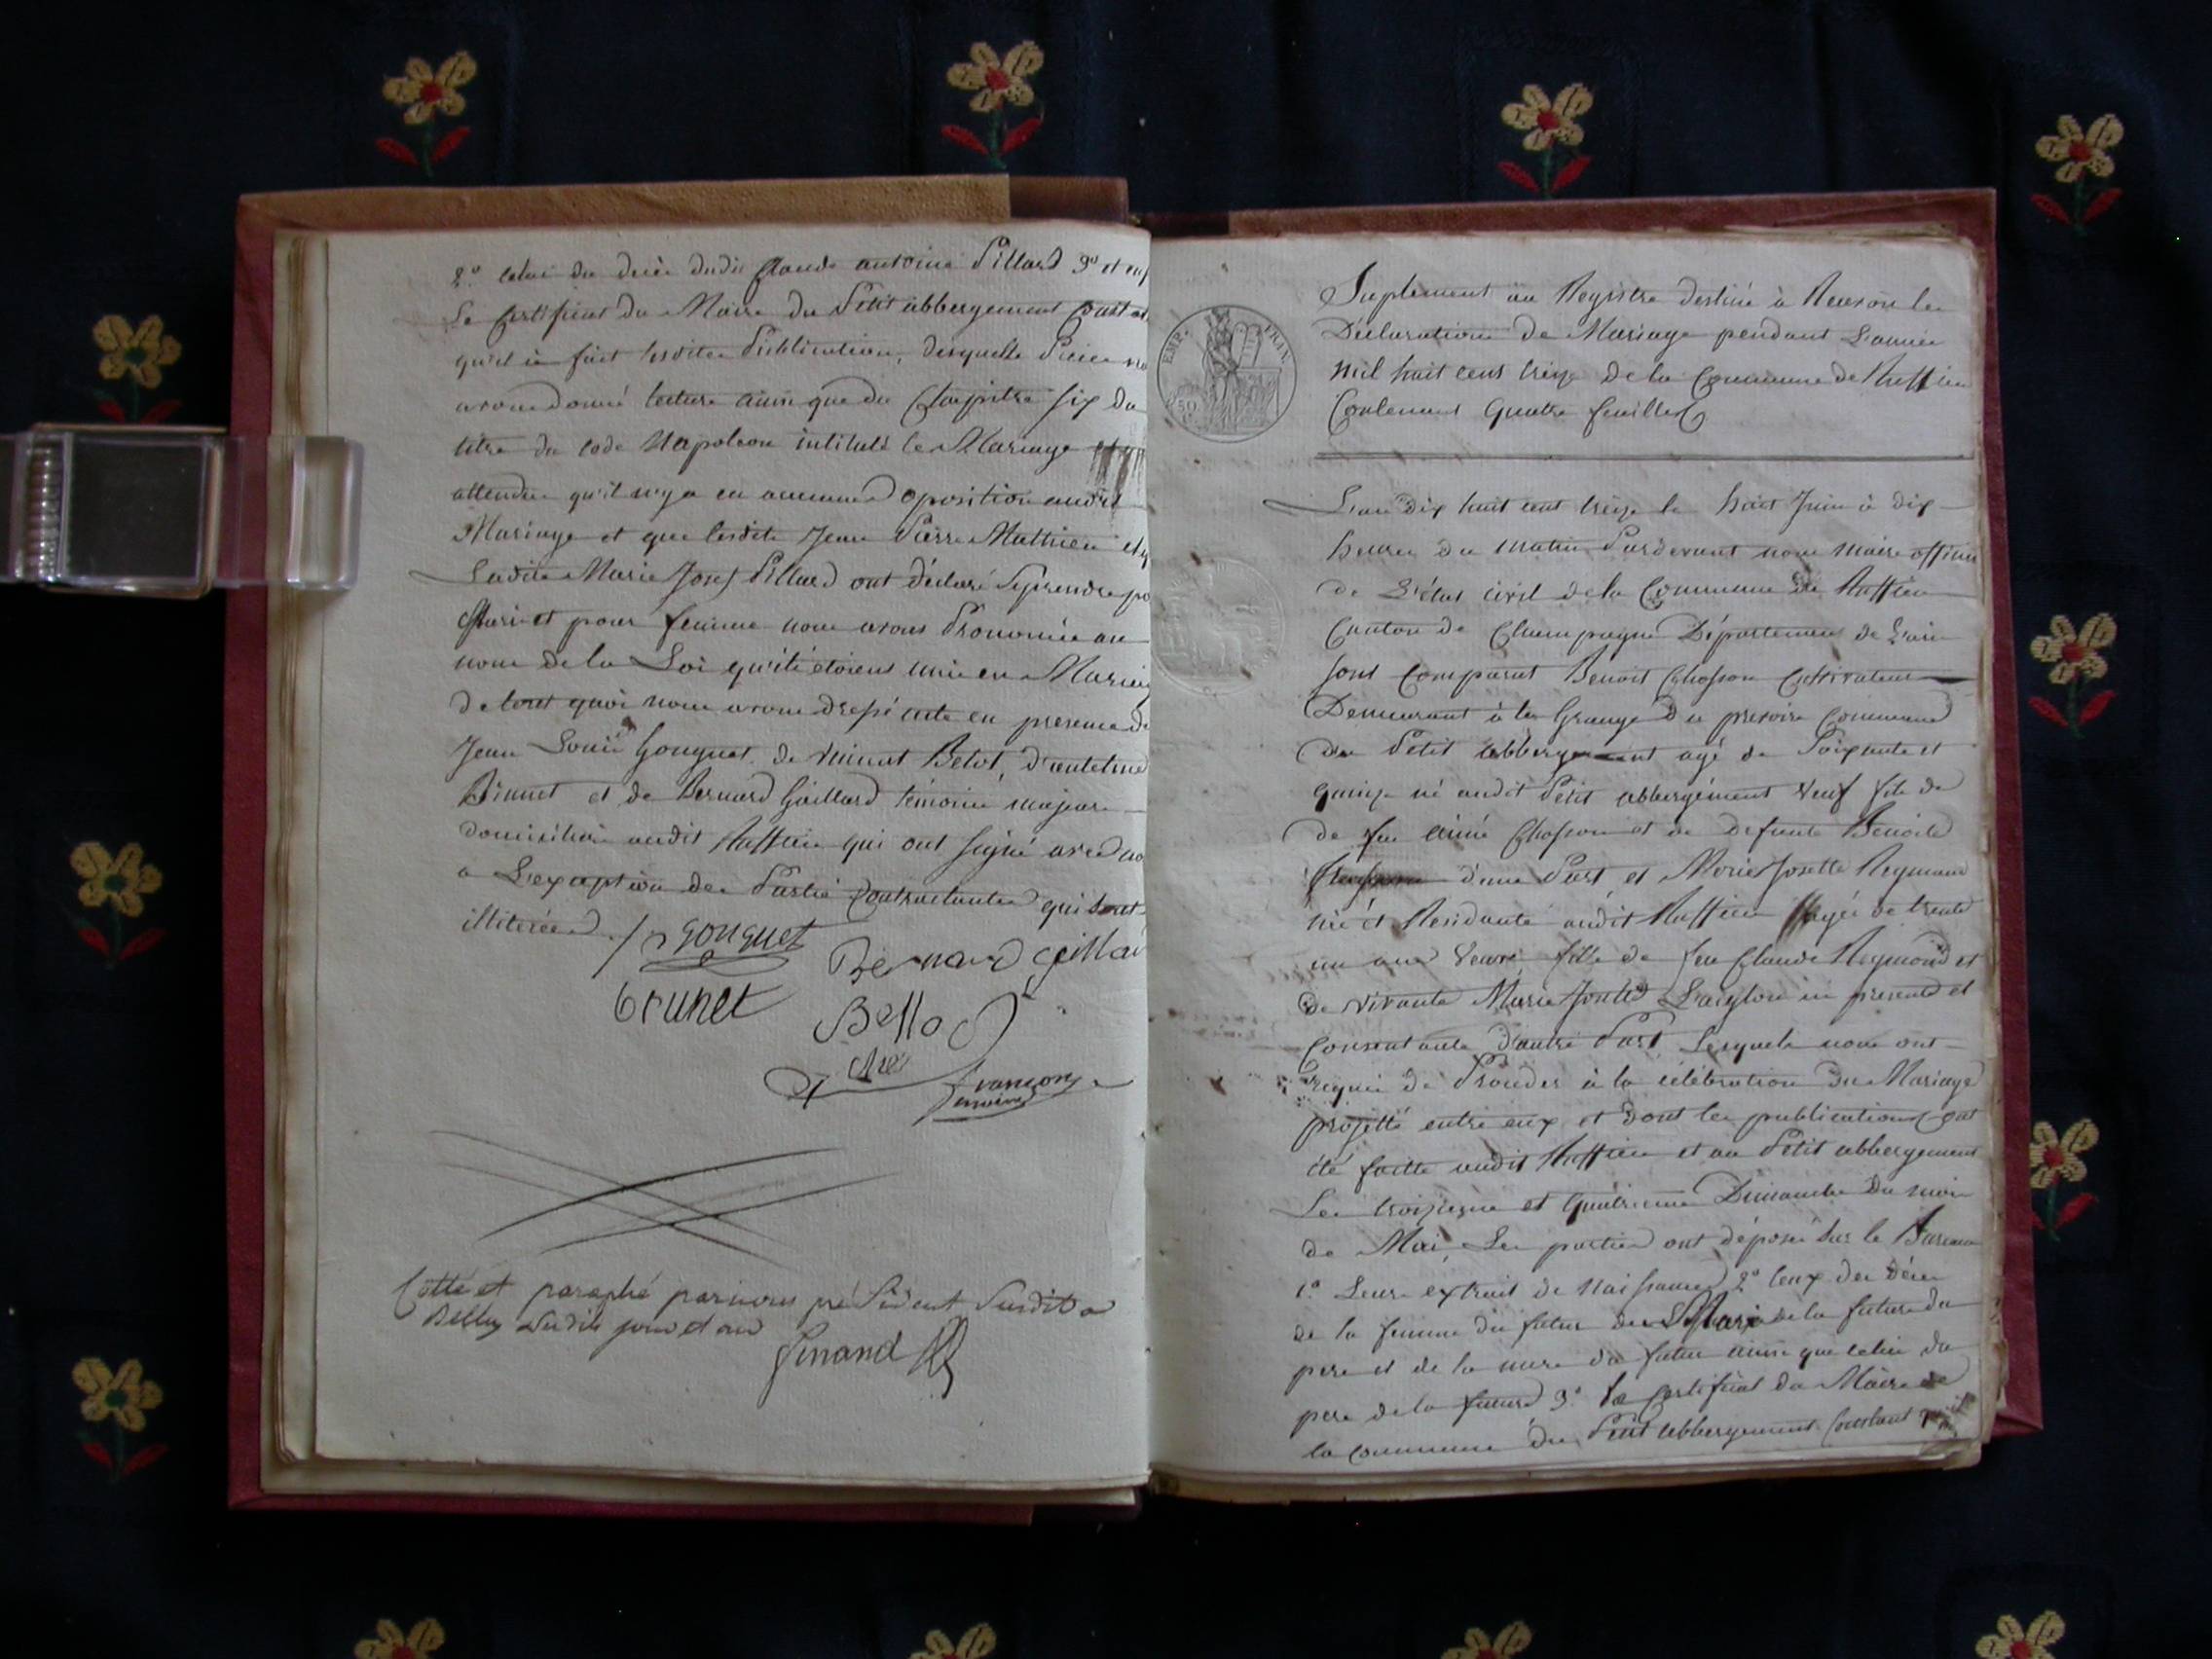 2.º celui du decès dudit Claude antoine Pillard 3º et enf
Le Certificat du Maire du Petit abbergement Constat
qu'il à fait lesdites Publication, desquelles Pièces no
avons donné lecture ainsi que du Chapitre six du
titre du code Napoleon intitulé le Mariage et
attendu qu'il n'y a eu aucune oposition audit
Mariage et que lesdits Jean Pierre Mathieu et
Ladite Marie Josef Pillard ont déclaré Se prendre po
Mari et pour femme nous avons Prononcée au
nom de la Loi qu'ils étoient unie en Mariag
de tout quoi nous avons dressé acte en presence de
Jean Louis Gouguet, de vincent Belot, D'antelme
Brunet et de Bernard Gaillard témoins majeurs
domiciliés audit Ruffieu qui ont signé avec no
a L'exception des Partie Contractantes qui sont
illiterées
gouguet
Bernard Geillar
brunet
Bellod
Mre
francon
Cotté et paraphé par nous président Susdit a
Belley Lesdits jour et an
finand
Suplement au Registre destiné à Recevoir les
Déclarations de Mariage pendant L'année
mil huit cent treize de la Commune de Ruffieu
Contenant quatre feuillet
EMP. FRAN.
50
L'an dix huit cent treize le huit Juin à dix
heures du matin Pardevant nous maire officier
de L'état civil de la Commune de Ruffieu
Canton de Champagne Département de L'ain
sont comparut Benoit Chosson Cultivateur
Demeurant à la Grange du prevoir Commune
du Petit abbergement agé de Soixante et
quinze né audit Petit abbergement Veuf fils de
de feu aimé Chosson et de defunte Benoite
d'une Part, et Marie Josette Reymond
née et Residante audit Ruffieu agée de trente
un ans Veuve fille de feu Claude Reymond et
de vivante Marie Josette ici presente et
Consentante d'autre Part, Lesquels nous ont
requis de Procéder à la célébration du Mariage
projetté entre eux et dont les publications ont
été faitte audit Ruffieu et au Petit abbergement
Les troisieme et quatrieme Dimanche du mois
de Mai, Les parties ont déposé sur le Bureau
1.º Leurs extrait de Naissances 2º ceux des décès
de la femme du futur du Mari de la future du
pere et de la mere du futur ainsi que celui du
pere de la future 3.º le Certificat du Maire de
la commune du Petit abbergement Constant